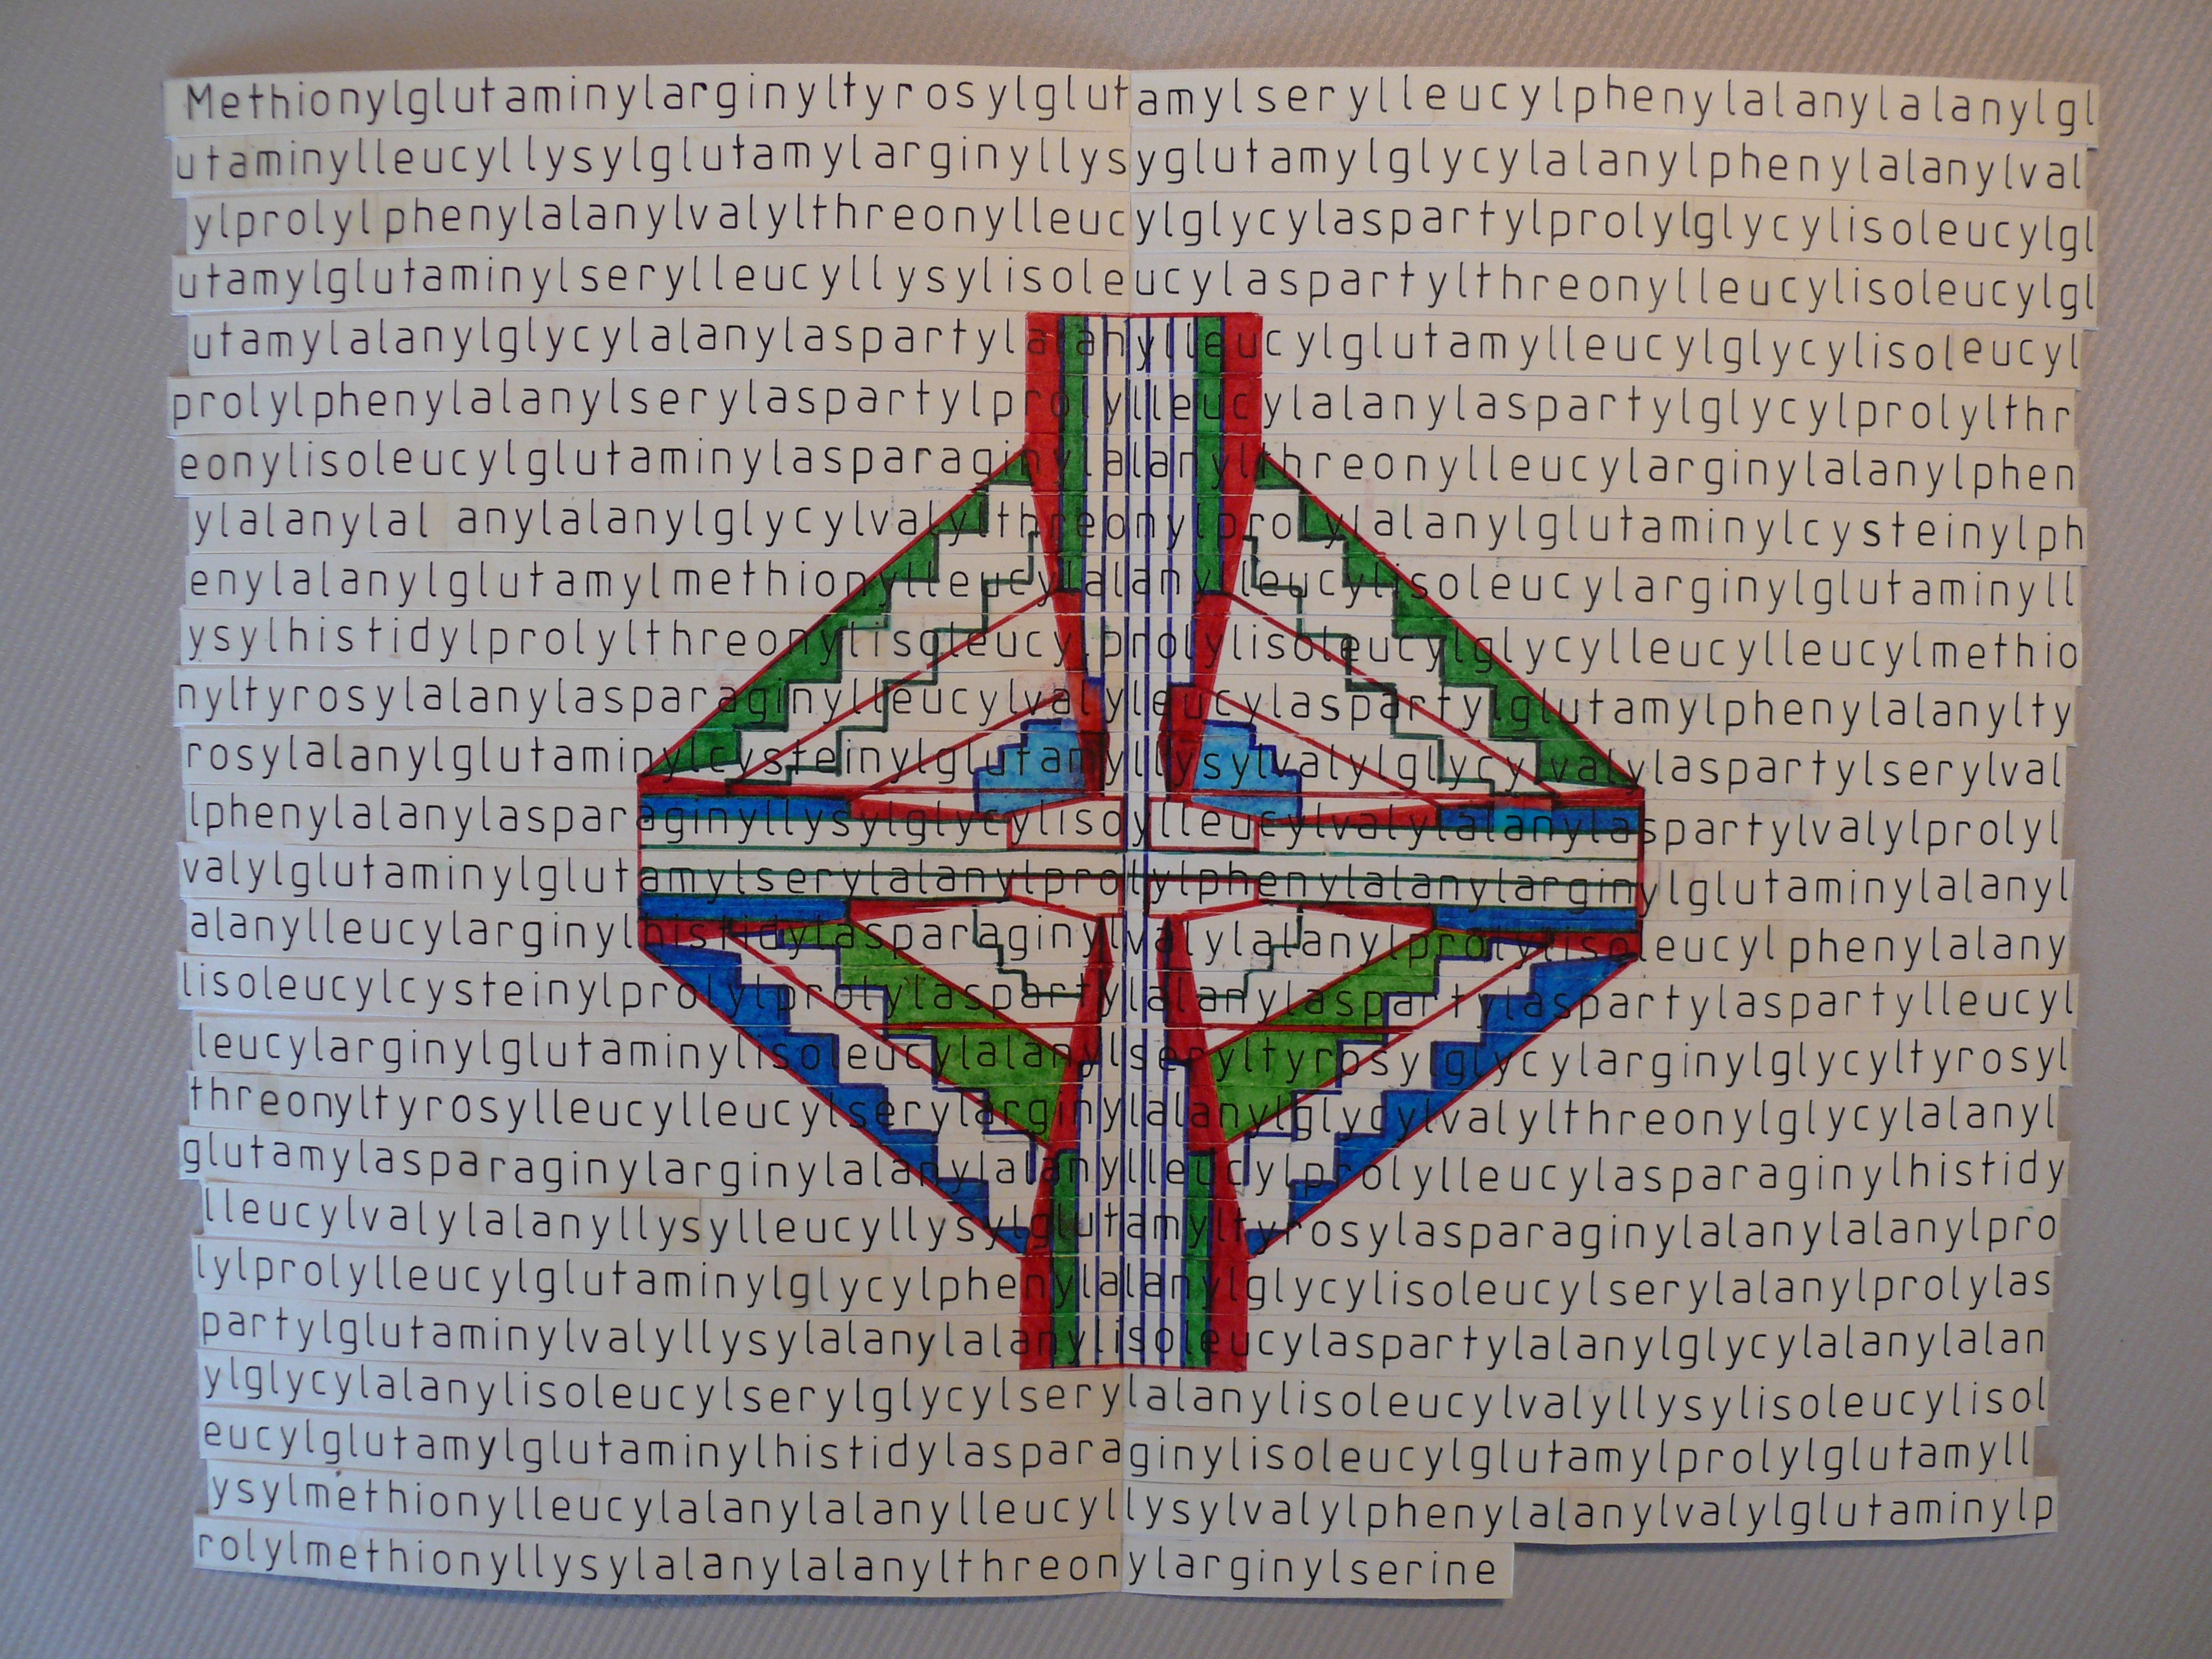 Methionylglutaminylarginyltyrosylglutamylserylleucylphenylalanylalanylgl
utaminylleucyllysylglutamylarginyllysyglutamylglycylalanylphenylalanylval
ylprolylphenylalanylvalylthreonylleucylglycylaspartylprolylglycylisoleucylgl
utamylglutaminylserylleucyllysylisoleucylaspartylthreonylleucylisoleucylgl
utamylalanylglycylalanylaspartylalanylleucylglutamylleucylglycylisoleucyl
prolylphenylalanylserylaspartylprolylleucylalanylaspartylglycylprolylthr
eonylisoleucylglutaminylasparaginylalanylthreonylleucylarginylalanylphen
ylalanylal anylalanylglycylvalylthreonylprolylalanylglutaminylcysteinylph
enylalanylglutamylmethionylleucylalanylleucylisoleucylarginylglutaminyll
ysylhistidylprolylthreonylisoleucylprolylisoleucylglycylleucylleucylmethio
nyltyrosylalanylasparaginylleucylvalyleucylaspartylglutamylphenylalanylty
rosylalanylglutaminylcysteinylglutamyllysylvalylglycylvalylaspartylserylval
lphenylalanylasparaginyllysylglycylisoylleucylvalylalanylaspartylvalylprolyl
valylglutaminylglutamylserylalanylprolylphenylalanylarginylglutaminylalanyl
alanylleucylarginylhistidylasparaginylvalylalanylprolylisoleucylphenylalany
lisoleucylcysteinylprolylprolylaspartylalanylaspartylaspartylaspartylleucyl
leucylarginylglutaminylisoleucylalanylseryltyrosylglycylarginylglycyltyrosyl
threonyltyrosylleucylleucylserylarginylalanylglycylvalylthreonylglycylalanyl
glutamylasparaginylarginylalanylalanylleucylprolylleucylasparaginylhistidy
lleucylvalylalanyllysylleucyllysylglutamyltyrosylasparaginylalanylalanylpro
lylprolylleucylglutaminylglycylphenylalanylglycylisoleucylserylalanylprolylas
partylglutaminylvalyllysylalanylalanylisoleucylaspartylalanylglycylalanylalan
ylglycylalanylisoleucylserylglycylserylalanylisoleucylvalyllysylisoleucylisol
eucylglutamylglutaminylhistidylasparaginylisoleucylglutamylprolylglutamyll
ysylmethionylleucylalanylalanylleucyllysylvalylphenylalanylvalylglutaminylp
rolylmethionyllysylalanylalanylthreonylarginylserine